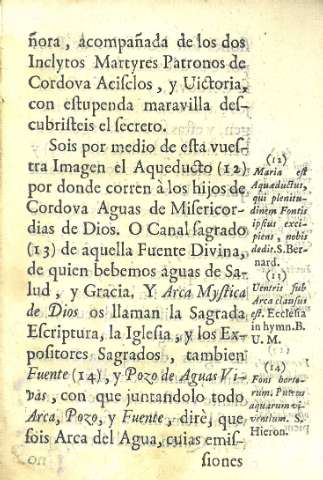 ñora, acompañada de los dos
Inclytos Martyres Patronos de
Cordova Aciſclos, y Uictoria,
con eſtupenda maravilla deſ-
cubriſteis el ſecreto.
Sois por medio de eſta vueſ-
tra Imagen el Aqueducto (12)
por donde corren à los hijos de
Cordova Aguas de Miſericor-
dias de Dios. O Canal ſagrado
(13) de aquella Fuente Divina,
de quien bebemos aguas de Sa-
lud, y Gracia. Y Arca Myſtica
de Dios os llaman la Sagrada
Eſcriptura, la Igleſia, y los Ex-
poſitores Sagrados, tambien
Fuente (14), y Pozo de Aguas Vi-
vas, con que juntandolo todo
Arca, Pozo, y Fuente, dirè, que
ſois Arca del Agua, cuias emiſ-
ſiones
(12)
Maria eſt
Aquæductus,
qui plenitu-
dinem Fontis
ipſius exci-
piens, nobis
dedit. S. Ber-
nard.
(13)
Ventris ſub
Arca clauſus
eſt. Eccleſia
in hymn. B.
U. M.
(14)
Fons horto-
rum: Puteus
aquarum vi-
ventium. S.
Hieron.